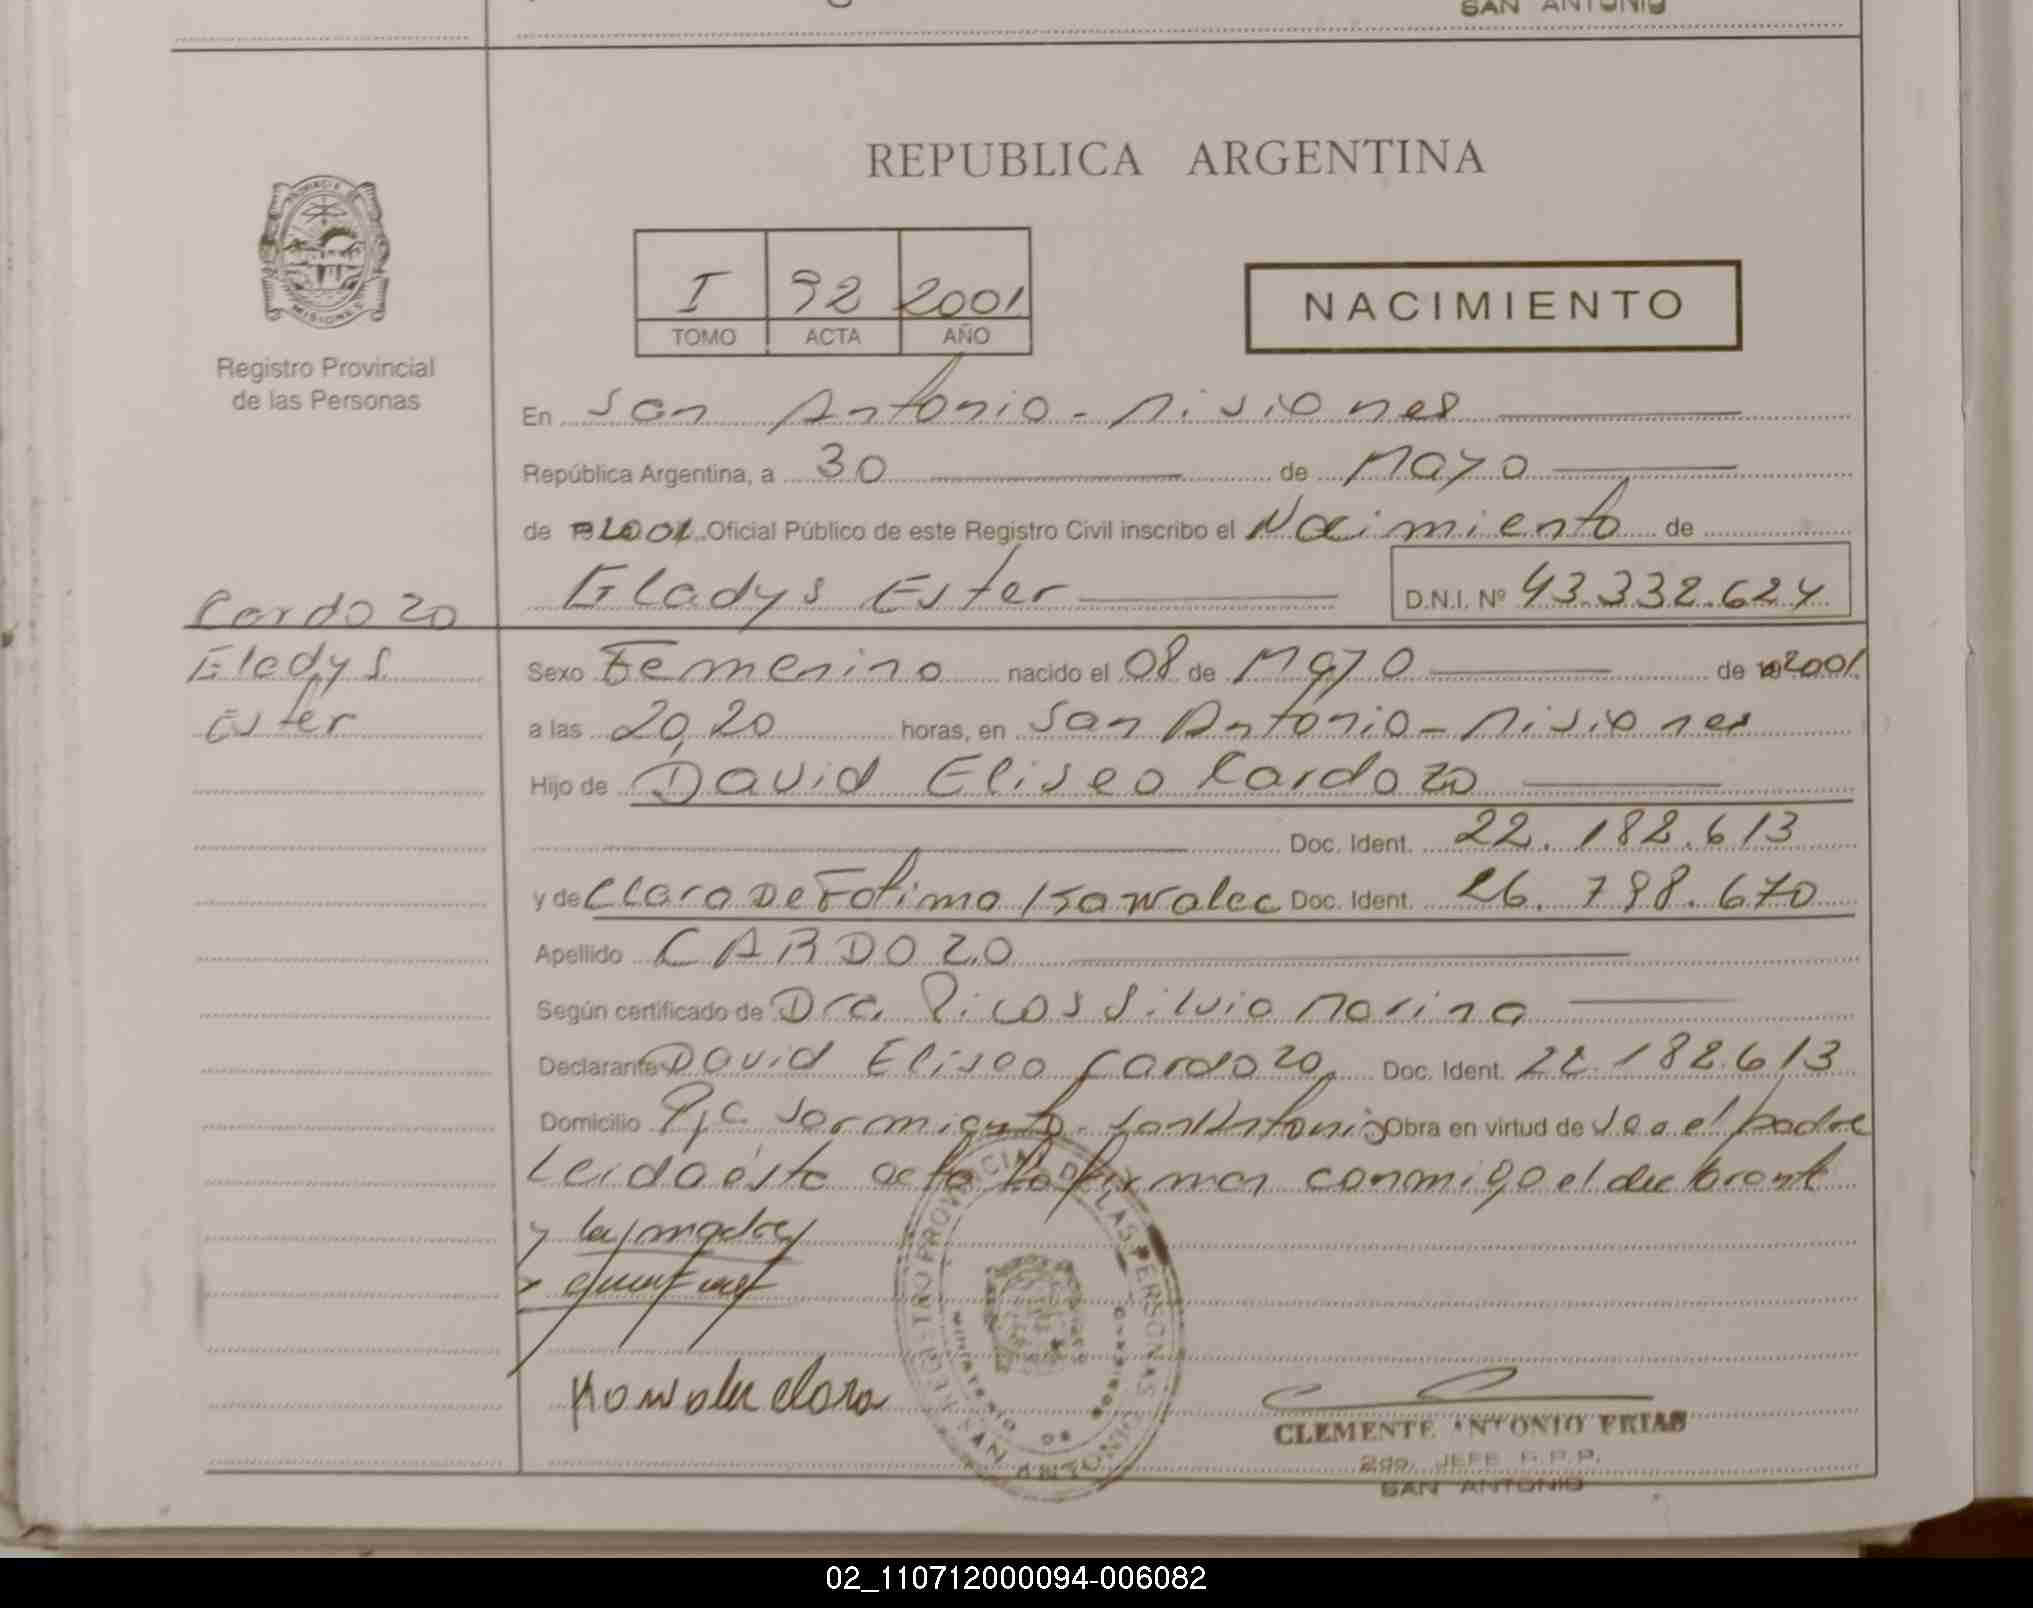 SAN ANTONIO
REPUBLICA ARGENTINA
I 92 2001
TOMO ACTA AÑO
NACIMIENTO
Registro Provincial
de las Personas
En San Antonio - Misiones
República Argentina, a 30 de Mayo
de 2001 Oficial Público de este Registro Civil inscribo el Nacimiento de
Gladys Ester D.N.I. Nº 43.332.624
Cardozo
Gladys
Ester
Sexo Femenino nacido el 08 de Mayo de 2001
a las 20,20 horas, en San Antonio - Misiones
Hijo de David Eliseo Cardozo
Doc. Ident. 22.182.613
y de Clara De Fatima Kawalec Doc. Ident. 26.798.670
Apellido CARDOZO
Según certificado de Dra. Picos Silvia Marina
Declarante David Eliseo Cardozo Doc. Ident. 22.182.613
Domicilio Pje. Sarmiento - San Antonio Obra en virtud de Ser el padre
Leida ésta acta la firman conmigo el declarante
y la madre
Kowalec Clara
REGISTRO PROVINCIAL DE LAS PERSONAS
MINISTERIO DE GOBIERNO
SAN ANTONIO
CLEMENTE ANTONIO FRIAS
2do. JEFE R.P.P.
SAN ANTONIO
02_110712000094-006082